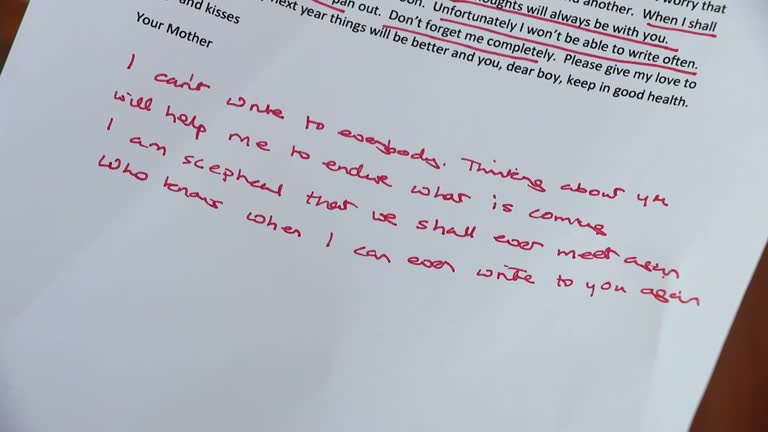 worry that
another. When I shall
thoughts will always be with you.
Unfortunately I won't be able to write often.
pan out. Don't forget me completely. Please give my love to
next year things will be better and you, dear boy, keep in good health.
and kisses
Your Mother
I can't write to everybody. Thinking about yu
will help me to endure what is coming
I am sceptical that we shall ever meet again
Who knows when I can even write to you again